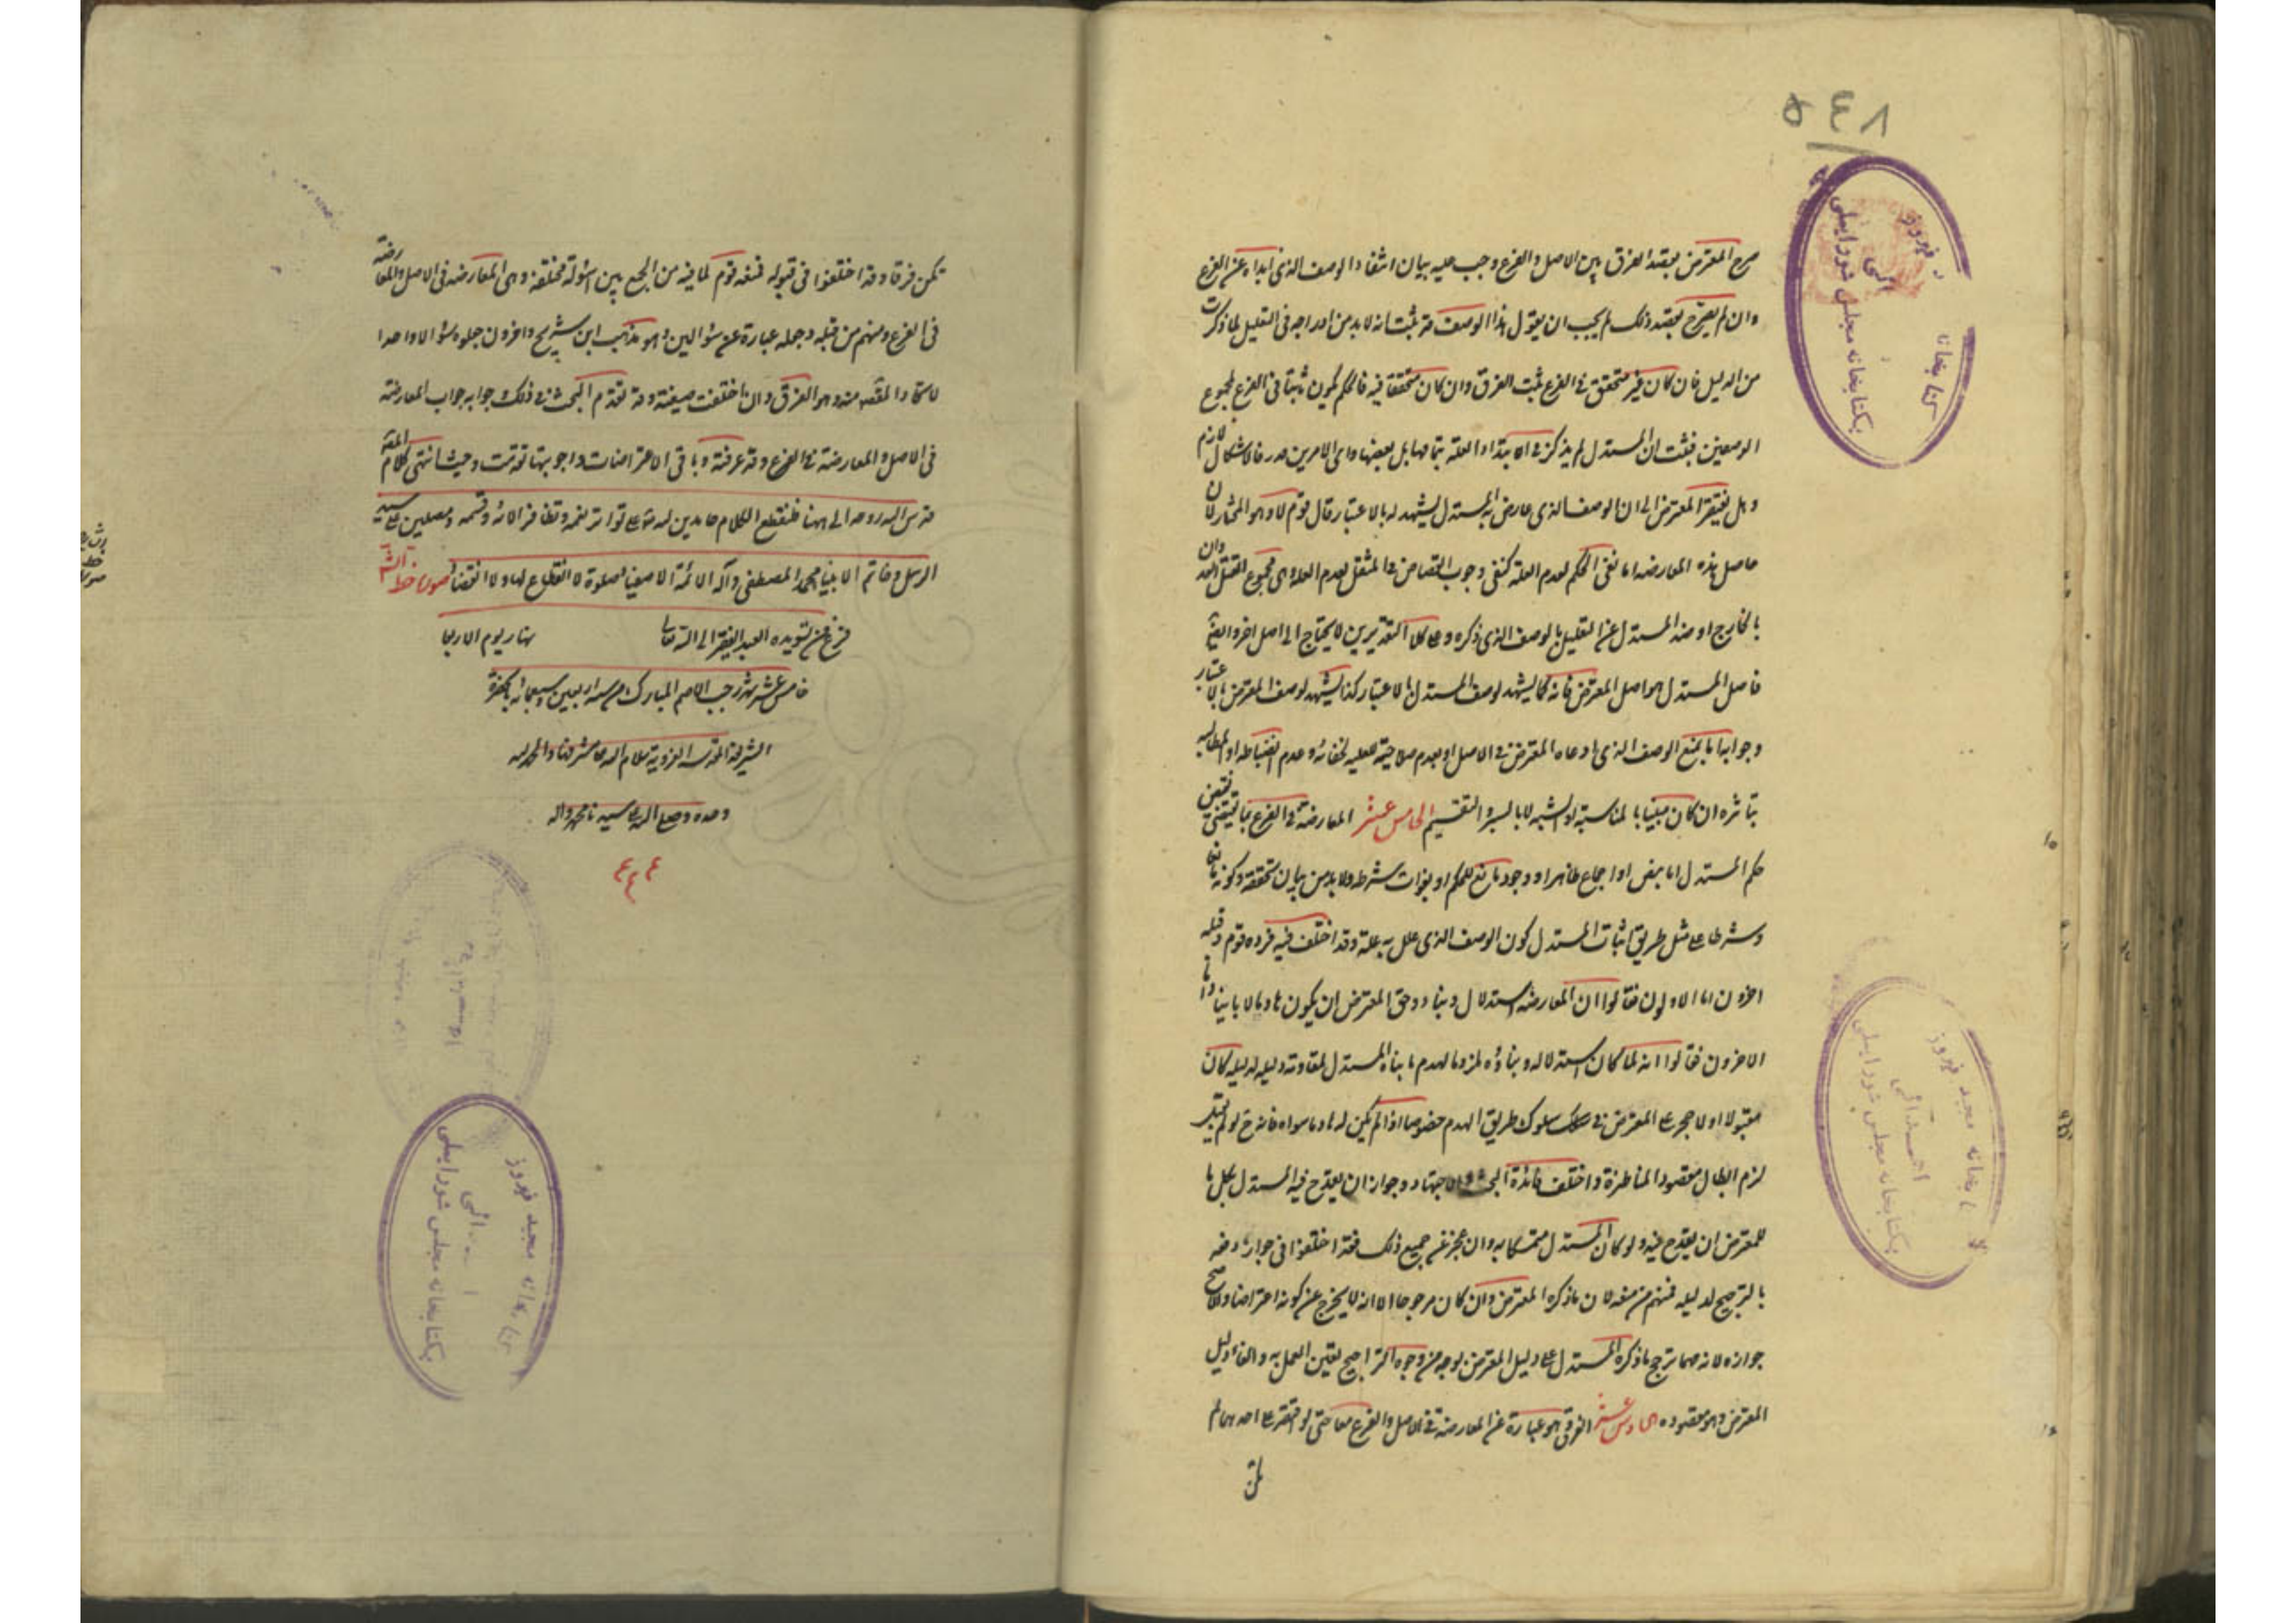 ٥٤٨
صرح المعترض بقصد الفرق بين الاصل والفرع وجب عليه بيان انتفاء الوصف الذى ابداه عن الفرع
وان لم يصرح بقصد ذلك لم يجب ان يقول هذا الوصف قد ثبت انه لا بد من ادراجه فى التعليل لما ذكرت
من الدليل فان كان غير متحقق فى الفرع ثبت الفرق وان كان متحققا فيه فالحكم يكون ثابتا فى الفرع لمجموع
الوصفين فثبت ان المستدل لم يذكر فى الابتداء العلة بتمامها بل بعضها واى الامرين قدر فالاشكال لازم
وهل يفتقر المعترض الى ان الوصف الذى عارض به المستدل يشهد له بالاعتبار قال قوم لا وهو المختار لان
حاصل هذه المعارضه اما نفى الحكم لعدم العلة كنفى وجوب القصاص فى المثقل لعدم العلة وهى مجموع القتل العمد وان
بالخارج او صد المستدل عن التعليل بالوصف الذى ذكره وعلى كلا التقديرين لا يحتاج الى اصل اخر وايضا
فاصل المستدل هو اصل المعترض فانه كما يشهد لوصف المستدل بالاعتبار كذا يشهد لوصف المعترض بالاعتبار
وجوابه اما بمنع الوصف الذى ادعاه المعترض فى الاصل او بعدم صلاحيته للعليه لخفائه وعدم انضباطه او المطالبه
بتاثره ان كان مبينا بالمناسبة او الشبه لا بالسبر والتقسيم الخامس عشر المعارضة فى الفرع بما يقتضى نقيض
حكم المستدل اما بنص او اجماع ظاهر او وجود مانع للحكم او بفوات شرطه ولا بد من بيان تحققه وكونه مانعا
وشرطا على مثل طريق اثبات المستدل كون الوصف الذى علل به علة وقد اختلف فيه فرده قوم وقبله
اخرون اما الاولون فقالوا ان المعارضه استدلال وبناء وحق المعترض ان يكون هادما لا بانيا واما
الاخرون فقالوا انه لما كان استدلاله وبناؤه لمزوما لهدم ما بناه المستدل لمقاومة دليله لدليله كان
مقبولا اولا حجر على المعترض فى سلوك طريق الهدم خصوصا اذا لم يكن له هادما سواه فانه لو لم يقبل
لزم ابطال مقصود المناظرة واختلف فائدة البحث والاجتهاد وجواز ان يقدح فيه المستدل بكل ما
للمعترض ان يقدح فيه ولو كان المستدل متمسكا به وان عجز عن جميع ذلك فقد اختلفوا فى جواز دفعه
بالترجيح لدليله فمنهم من منعه لان ما ذكره المعترض وان كان مرجوحا الا انه لا يخرج عن كونه اعتراضا والاصح
جوازه لانه مهما ترجح ما ذكره المستدل على دليل المعترض بوجه من وجوه التراجيح تعين العمل به والغاء دليل
المعترض وهو مقصوده السادس عشر الفرق وهو عبارة عن المعارضة فى الاصل والفرع معا حتى لو اقتصر على احدهما لم
يكن
يكن فرقا وقد اختلفوا فى قبوله فمنعه قوم لما فيه من الجمع بين اسئولة مختلفة وهى المعارضه فى الاصل والمعارضة
فى الفرع ومنهم من قبله وجعله عبارة عن سؤالين وهو مذهب ابن شريح واخرون جعلوه سؤالا واحدا
لاتحاد المقصود منه وهو الفرق وان اختلفت صيغته وقد تقدم البحث فى ذلك وجوابه جواب المعارضة
فى الاصل والمعارضة فى الفرع وقد عرفته وباقى الاعتراضات واجوبتها تقدمت وحيث انتهى كلام المصنف
قدس الله روحه الى ههنا فلنقطع الكلام حامدين لله على تواتر نعمه وتظافر الائه وقسمه ومصلين على سيد
الرسل وخاتم الانبياء محمد المصطفى وآله الائمة الاصفياء صلوة لا انقطاع لها ولا انقضاء صورة خط الشارح
فرغ من تسويده العبد الفقير الى الله تعالى نهار يوم الاربعا
خامس عشر شهر رجب الاصم المبارك من سنة اربعين وسبعمائه بالحضرة
الشريفة المقدسة الغروية سلام الله على مشرفها والحمد لله
وحده وصلى الله على سيدنا محمد واله
كتابخانه مجيد فيروز
بكتابخانه مجلس شورايملى
كتابخانه مجيد فيروز
اهـدائى
بكتابخانه مجلس شورايملى
كتابخانه مجيد فيروز
بكتابخانه مجلس شورايملى